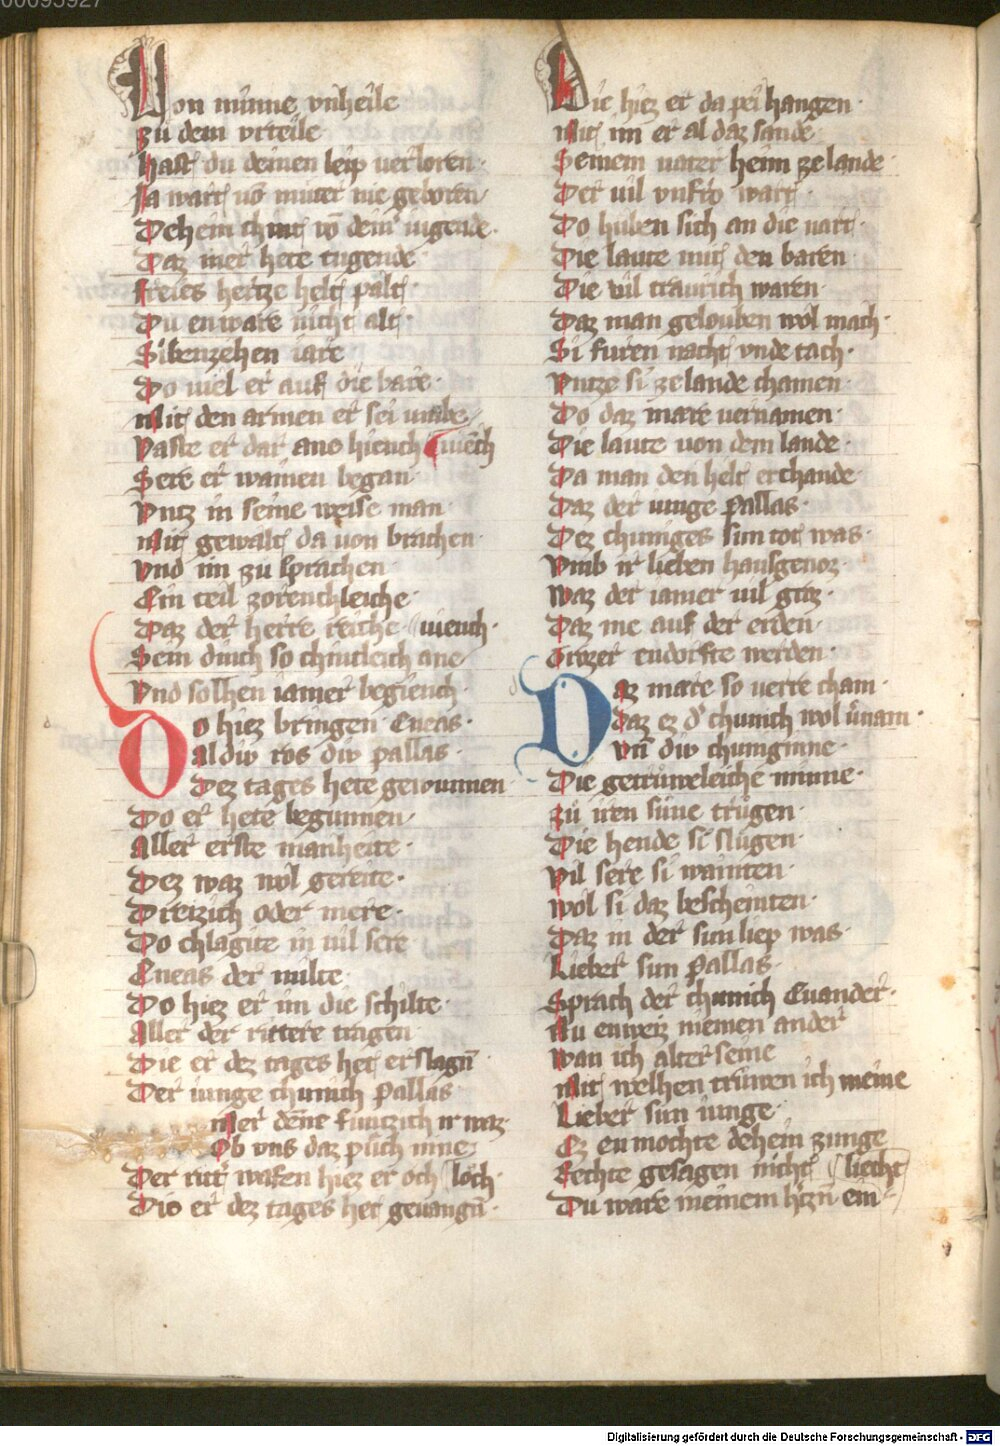 00095927
Von minne vnheile
zů dem vrteile
Hast du deinen leip verloren·
Ja wart vō muter nie geboren·
Dehein chint vō dein' iugende·
Daz mer hete tugende·
Freies hertze helt palt·
Du enware nicht alt·
Sibenzehen iare
Do viel er auf die bare·
Mit den armen er sei vmbe
Vaste er dar ane hiench vīech
Sere er wainen began·
Vntz in seine weise man·
Mit gewalt da von brachen·
Vnd im zu sprachen
Ein teil zorenchleiche·
Daz der herre reiche
Sein dinch so chintleich ane viench·
Vnd solhen iamer begiench·
Do hiez bringen Eneas·
Al div ros div pallas·
Dez tages hete gewunnen·
Do er hete begunnen·
Aller erste manheite·
Dez waz wol gereite·
Dreizich oder mere·
Do chlagite in vil sere
Eneas der milte·
Do hiez er im die schilte·
Aller der rittere tragen·
Die er dez tages het erslagn̄
Der iunge chunich Pallas·
Mer dēne funtzich ir waz
Ob vns daz půch nine
Der rit' wafen hiez er och loch·
Div er dez tages het geuangn̄·
Die hiez er da pei hangen·
Mit im er al daz sande·
Seinem vater heim ze lande·
Der vil vnfro wart·
Do huben sich an die vart·
Die laute mit den baren
Die vil traurich waren·
Daz man gelouben wol mach·
Si furen nacht vnde tach·
Vntze si ze lande chamen·
Do daz mare vernamen·
Die laute von dem lande·
Da man den helt erchande·
Daz der iunge Pallas·
Dez chuniges sun tot was·
Vmb ir lieben hausgenoz·
Waz der iamer vil groz·
Daz nie auf der erden·
Grozer endorfte werden·
Daz mare so verre cham·
Daz ez d' chunich wol v'nam·
Vn̄ div chuniginne·
Die getriuweleiche minne·
zů iren sune trůgen·
Die hende si slůgen·
Vil sere si wainten·
Wol si daz bescheinten·
Daz in der sun liep was·
Lieber sun Pallas·
Sprach der chunich Euander·
Nu enweiz niemen ander
Wan ich alter seine
Mit welhen triuwen ich meine
Lieber sun iunge·
Ez en mochte dehein zunge
Rechte gesagen nicht
Du ware meinem h'zn̄ ein liecht
Digitalisierung gefördert durch die Deutsche Forschungsgemeinschaft - DFG